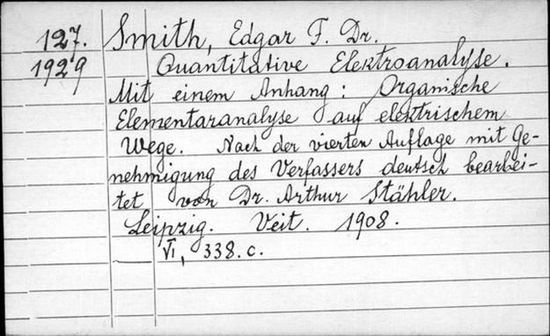 127. Smith, Edgar F. Dr.
1929 Quantitative Elektroanalyse.
Mit einem Anhang: Organische
Elementaranalyse auf elektrischem
Wege. Nach der vierten Auflage mit Ge-
nehmigung des Verfassers deutsch bearbei-
tet von Dr. Arthur Stähler.
Leipzig. Veit. 1908.
VI, 338. c.